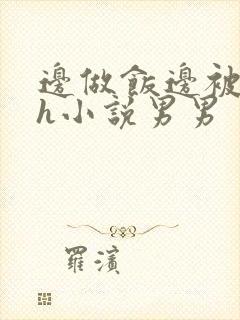 邊做飯邊被
h小説男男
羅濱